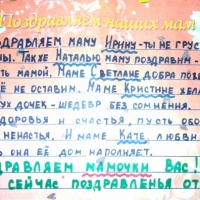 Поздравляем наших мам
ОЗДРАВЛЯЕМ МАМУ ИРИНУ - ТЫ НЕ ГРУС
НЫ. ТАКЖЕ НАТАЛЬЮ МАМУ ПОЗДРАВИМ -
ТЬ МАМОЙ. МАМЕ СВЕТЛАНЕ ДОБРА ПОЖЕ
Ё НЕ ОСТАВИМ. МАМЕ КРИСТИНЕ ЖЕЛА
УХ ДОЧЕК - ШЕДЕВР БЕЗ СОМНЕНИЯ.
ДОРОВЬЯ И СЧАСТЬЯ, ПУСТЬ ОБО
НЕНАСТЬЯ. И МАМЕ КАТЕ, ЛЮБВИ
Ь ОНА ЕЁ ДОМ НАПОЛНЯЕТ.
ДРАВЛЯЕМ МАМОЧКИ ВАС!
СЕЙЧАС ПОЗДРАВЛЕНЬЯ ОТ